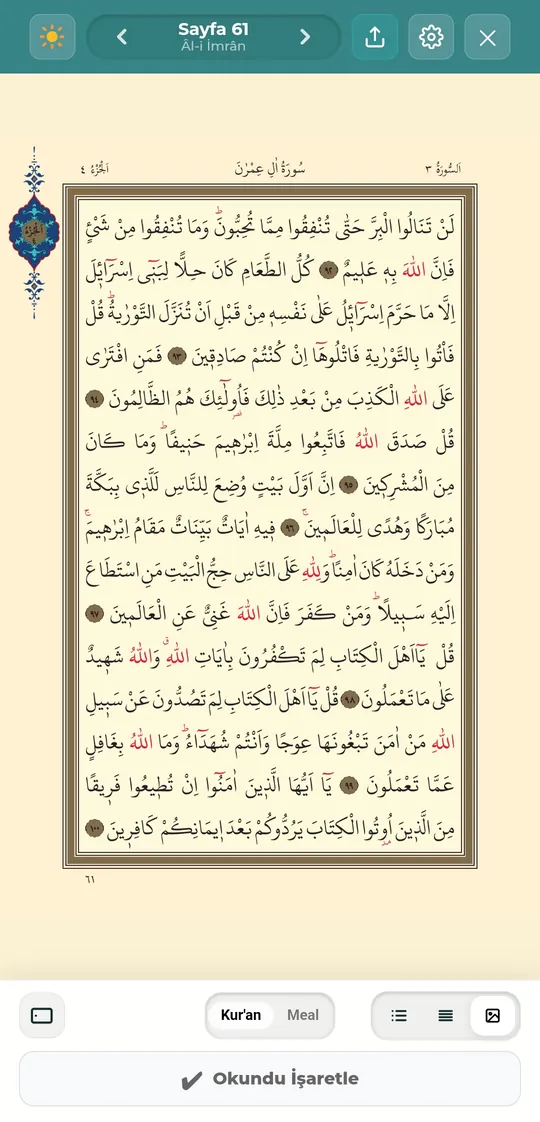 Sayfa 61
Âl-i İmrân
اَلْجُزْءُ ٤
سُورَةُ اٰلِ عِمْرٰنَ
اَلسُّورَةُ ٣
اَلْجُزْءُ ٤
لَنْ تَنَالُوا الْبِرَّ حَتّٰى تُنْفِقُوا مِمَّا تُحِبُّونَۜ وَمَا تُنْفِقُوا مِنْ شَيْءٍ
فَاِنَّ اللّٰهَ بِه۪ عَل۪يمٌ ﴿٩٢﴾ كُلُّ الطَّعَامِ كَانَ حِلًّا لِبَن۪ٓي اِسْرَٓائ۪لَ
اِلَّا مَا حَرَّمَ اِسْرَٓائ۪لُ عَلٰى نَفْسِه۪ مِنْ قَبْلِ اَنْ تُنَزَّلَ التَّوْرٰيةُۜ قُلْ
فَأْتُوا بِالتَّوْرٰيةِ فَاتْلُوهَٓا اِنْ كُنْتُمْ صَادِق۪ينَ ﴿٩٣﴾ فَمَنِ افْتَرٰى
عَلَى اللّٰهِ الْكَذِبَ مِنْ بَعْدِ ذٰلِكَ فَاُو۬لٰٓئِكَ هُمُ الظَّالِمُونَ ﴿٩٤﴾
قُلْ صَدَقَ اللّٰهُ فَاتَّبِعُوا مِلَّةَ اِبْرٰه۪يمَ حَن۪يفًاۜ وَمَا كَانَ
مِنَ الْمُشْرِك۪ينَ ﴿٩٥﴾ اِنَّ اَوَّلَ بَيْتٍ وُضِعَ لِلنَّاسِ لَلَّذ۪ي بِبَكَّةَ
مُبَارَكًا وَهُدًى لِلْعَالَم۪ينَۚ ﴿٩٦﴾ ف۪يهِ اٰيَاتٌ بَيِّنَاتٌ مَقَامُ اِبْرٰه۪يمَۚ
وَمَنْ دَخَلَهُ كَانَ اٰمِنًاۜ وَلِلّٰهِ عَلَى النَّاسِ حِجُّ الْبَيْتِ مَنِ اسْتَطَاعَ
اِلَيْهِ سَب۪يلًاۜ وَمَنْ كَفَرَ فَاِنَّ اللّٰهَ غَنِيٌّ عَنِ الْعَالَم۪ينَ ﴿٩٧﴾
قُلْ يَٓا اَهْلَ الْكِتَابِ لِمَ تَكْفُرُونَ بِاٰيَاتِ اللّٰهِۗ وَاللّٰهُ شَه۪يدٌ
عَلٰى مَا تَعْمَلُونَ ﴿٩٨﴾ قُلْ يَٓا اَهْلَ الْكِتَابِ لِمَ تَصُدُّونَ عَنْ سَب۪يلِ
اللّٰهِ مَنْ اٰمَنَ تَبْغُونَهَا عِوَجًا وَاَنْتُمْ شُهَدَٓاءُۜ وَمَا اللّٰهُ بِغَافِلٍ
عَمَّا تَعْمَلُونَ ﴿٩٩﴾ يَٓا اَيُّهَا الَّذ۪ينَ اٰمَنُٓوا اِنْ تُط۪يعُوا فَر۪يقًا
مِنَ الَّذ۪ينَ اُو۫تُوا الْكِتَابَ يَرُدُّوكُمْ بَعْدَ ا۪يمَانِكُمْ كَافِر۪ينَ ﴿١٠٠﴾
٦١
Kur'an
Meal
Okundu İşaretle